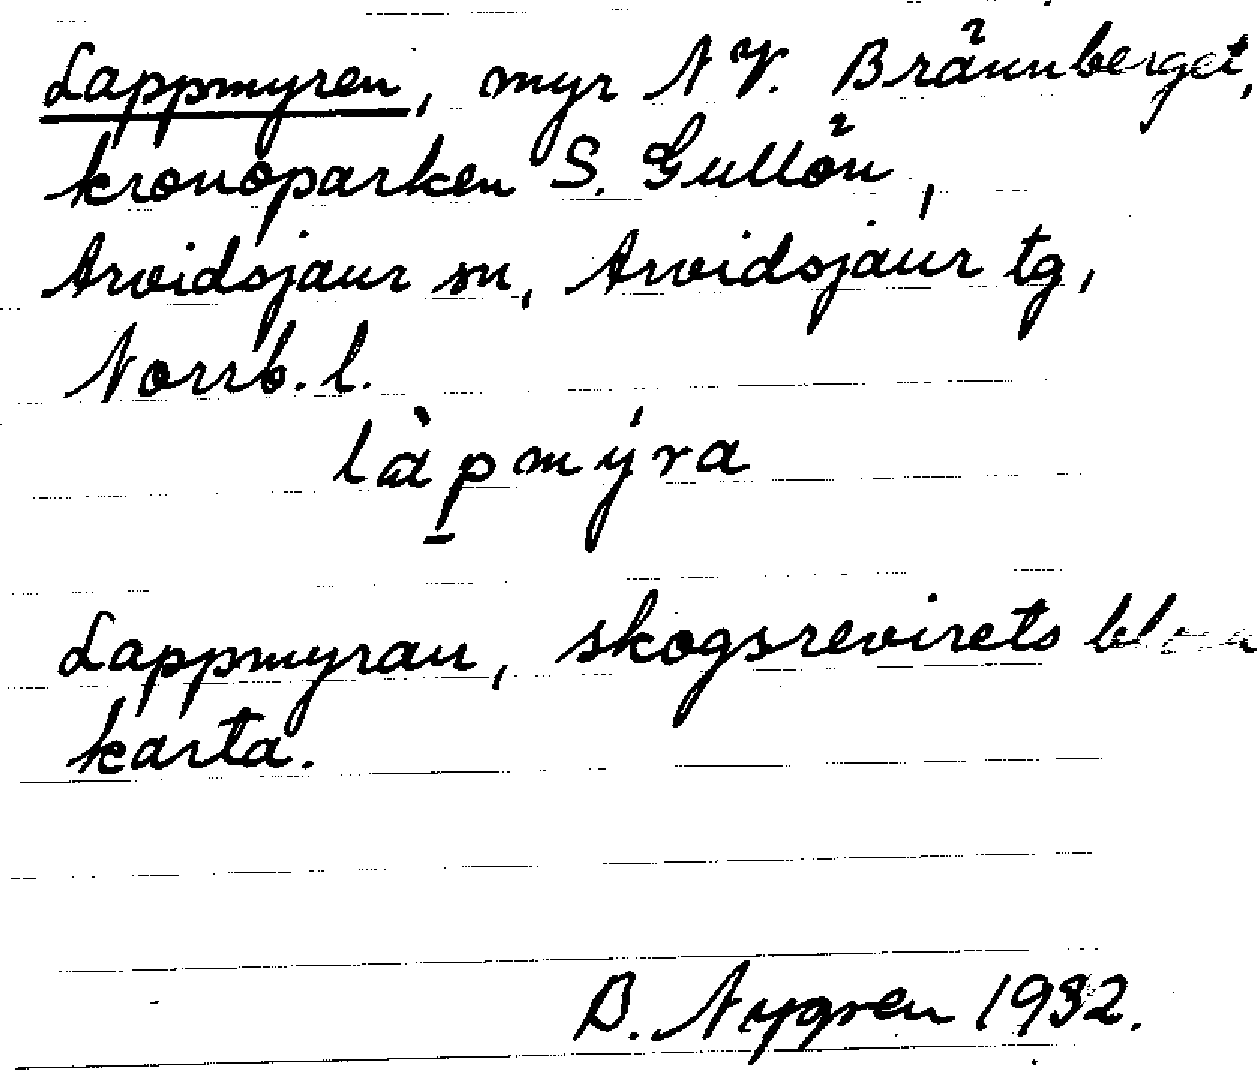 Lappmyren, myr N V. Brännberget,
kronoparken S. Gullön,
Arvidsjaur sn, Arvidsjaur tg,
Norrb. l.
làpmýra
Lappmyran, skogsrevirets
karta.
B. Nygren 1932.